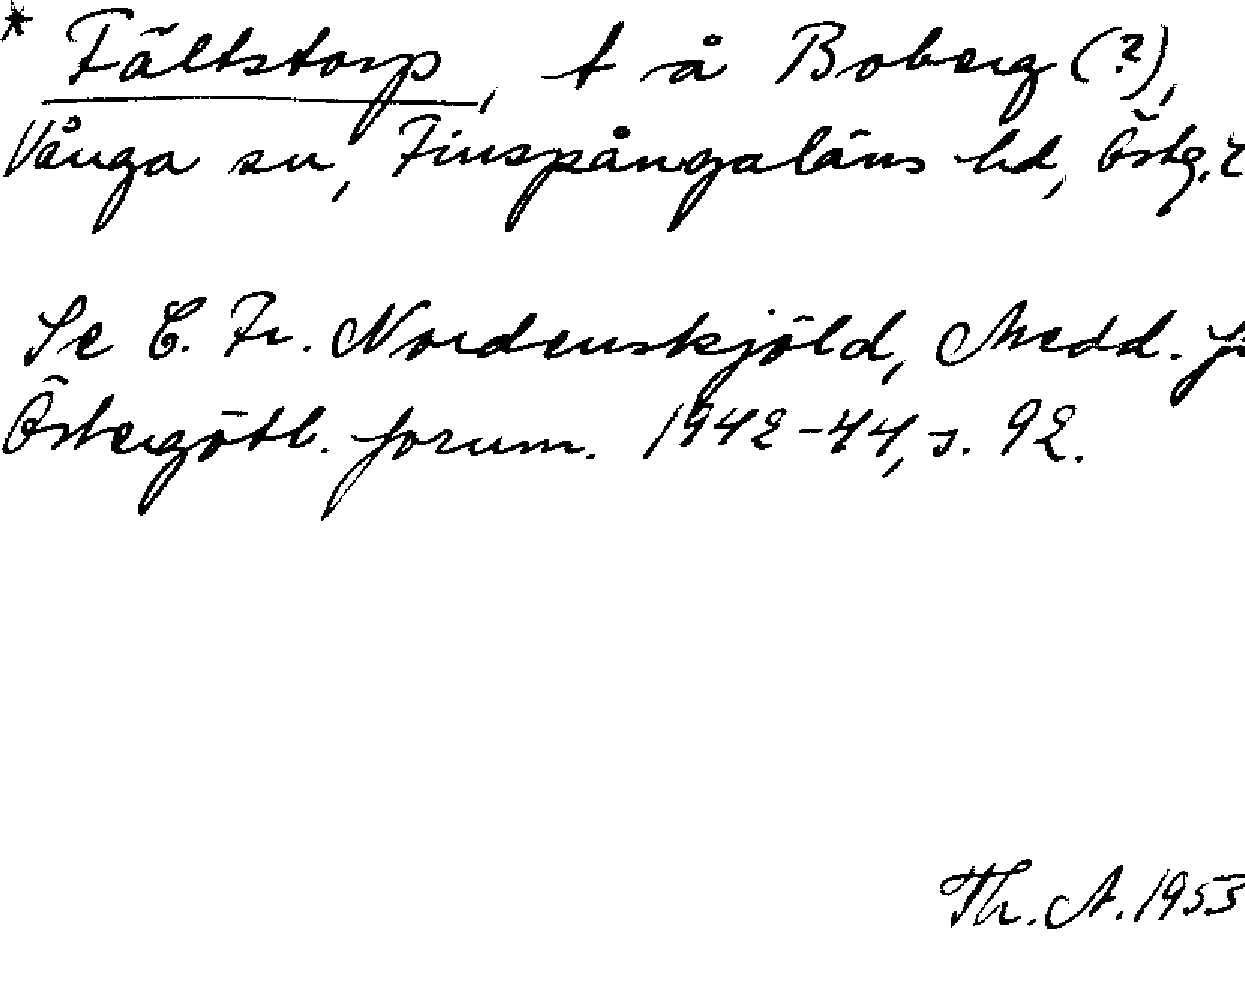 * Fältstorp, t å Boberg (?),
Vånga sn, Finspångaläns hd, Östg.
Se C. Fr. Nordenskjöld, Medd. fr
Östergötl. fornm. 1942-44, s. 92.
Th. A. 1953